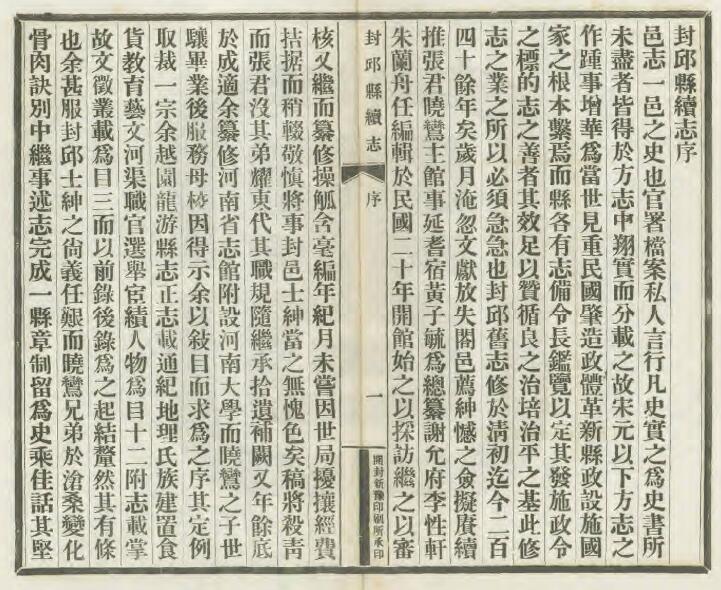 封邱縣續志序
邑志一邑之史也官署檔案私人言行凡史實之爲史書所
未盡者皆得於方志中翔實而分載之故宋元以下方志之
作踵事增華爲當世見重民國肇造政體革新縣政設施國
家之根本繫焉而縣各有志備令長鑑覽以定其發施政令
之標的志之善者其效足以贊循良之治培治平之基此修
志之業之所以必須急急也封邱舊志修於清初迄今二百
四十餘年矣歲月淹忽文獻放失闔邑薦紳憾之僉擬賡續
推張君曉鸞主館事延耆宿黃子毓爲總纂謝允府李性軒
朱蘭舟任編輯於民國二十年開館始之以採訪繼之以審
封邱縣續志
序
一
開封新豫印刷所承印
核又繼而纂修操觚含毫編年紀月未嘗因世局擾攘經費
拮据而稍輟敬慎將事封邑士紳當之無愧色矣稿將殺青
而張君沒其弟耀東代其職規隨繼承拾遺補闕又年餘底
於成適余纂修河南省志館附設河南大學而曉鸞之子世
驤畢業後服務母校因得示余以敍目而求爲之序其定例
取裁一宗余越園龍游縣志正志載通紀地理氏族建置食
貨教育藝文河渠職官選舉宦績人物爲目十二附志載掌
故文徵叢載爲目三而以前錄後錄爲之起結釐然其有條
也余甚服封邱士紳之尙義任艱而曉鸞兄弟於滄桑變化
骨肉訣別中繼事述志完成一縣章制留爲史乘佳話其堅